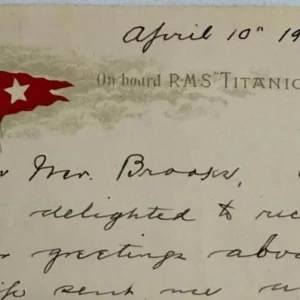 April 10th 19
On board R.M.S. "TITANIC
Mr. Brooks,
delighted to rec
greetings abo
sent me